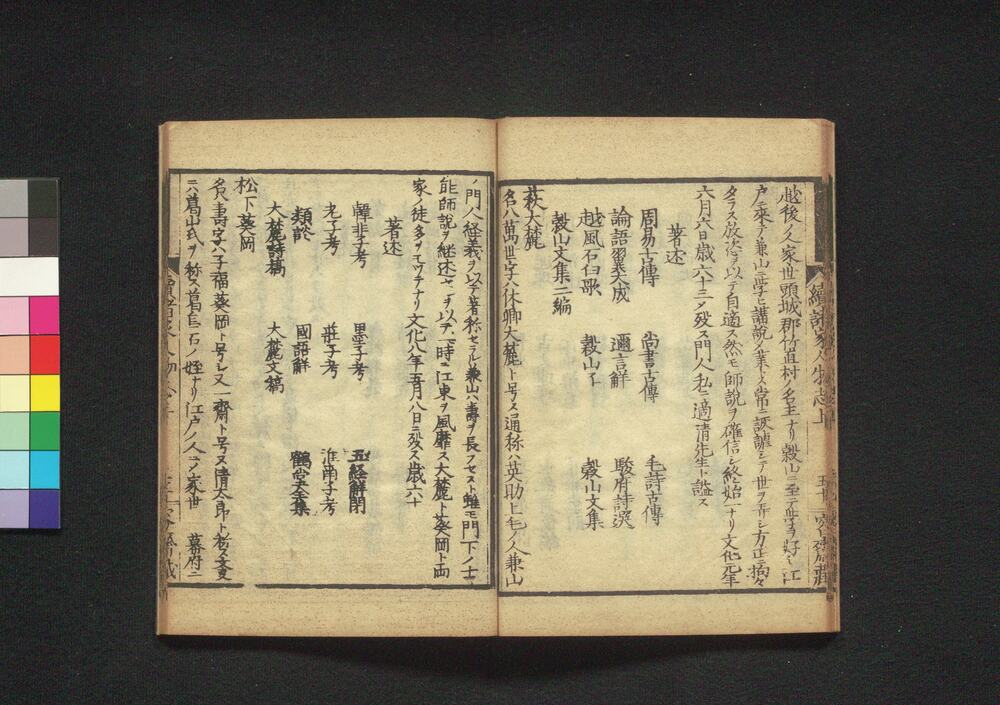 越後ノ人家世頭城郡竹直村ノ名主ナリ穀山ニ至テ学ヲ好ミ江
戸ニ來テ兼山ニ学ヒ講説ヲ業トス常ニ詼謔シテ世ヲ弄シ方正ニ拘々
タラス放浴ヲ以テ自適ス然モ師説ヲ確信シ終始一ナリ文化元年
六月六日歳六十三ニメ歿ス門人私ニ適清先生ト謚ス
著述
周易古傳 尚書古傳 毛詩古傳
論語翼大成 邇言解 駿府詩選
越風石臼歌 穀山子 穀山文集
穀山文集二編
萩大麓
名ハ萬世字ハ休卿大麓ト号ス通称ハ英助上毛ノ人兼山
ノ門人経義ヲ以テ著称セラル兼山ハ壽ヲ長フセスト雖モ門下ノ士
能師説ヲ継述セシヲ以テ一時ニ江東ヲ風靡ス大麓ト葵岡ト両
家ノ徒多シテナリ文化八年五月八日ニ歿ス歳六十
著述
韓非子考 墨子考 五経解閉
老子考 荘子考 淮南子考
類説 國語解 鶴堂全集
大麓詩稿 大麓文稿
松下葵岡
名ハ壽字ハ子福葵岡ト号シ又一齋ト号ス清太郎ト称ス又更
ニ葛山氏ヲ称ス葛烏石ノ姪ナリ江戸ノ人ニテ家世 幕府ニ